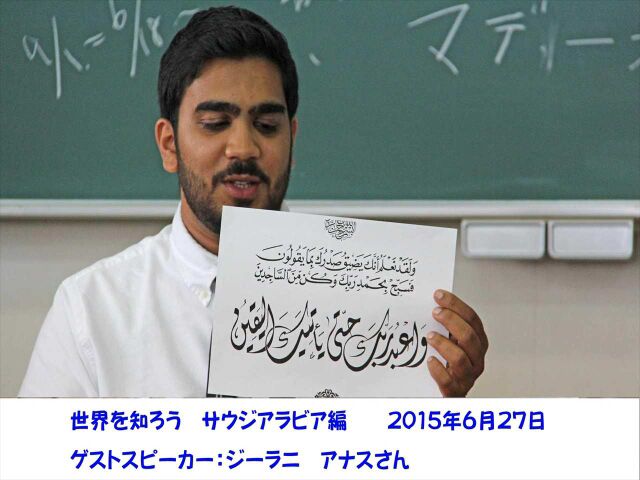 وَلَقَدْ نَعْلَمُ أَنَّكَ يَضِيقُ صَدْرُكَ بِمَا يَقُولُونَ
فَسَبِّحْ بِحَمْدِ رَبِّكَ وَكُنْ مِنَ السَّاجِدِينَ
وَاعْبُدْ رَبَّكَ حَتَّى يَأْتِيَكَ الْيَقِينُ
世界を知ろう　サウジアラビア編　　2015年6月27日
ゲストスピーカー：ジーラニ　アナスさん